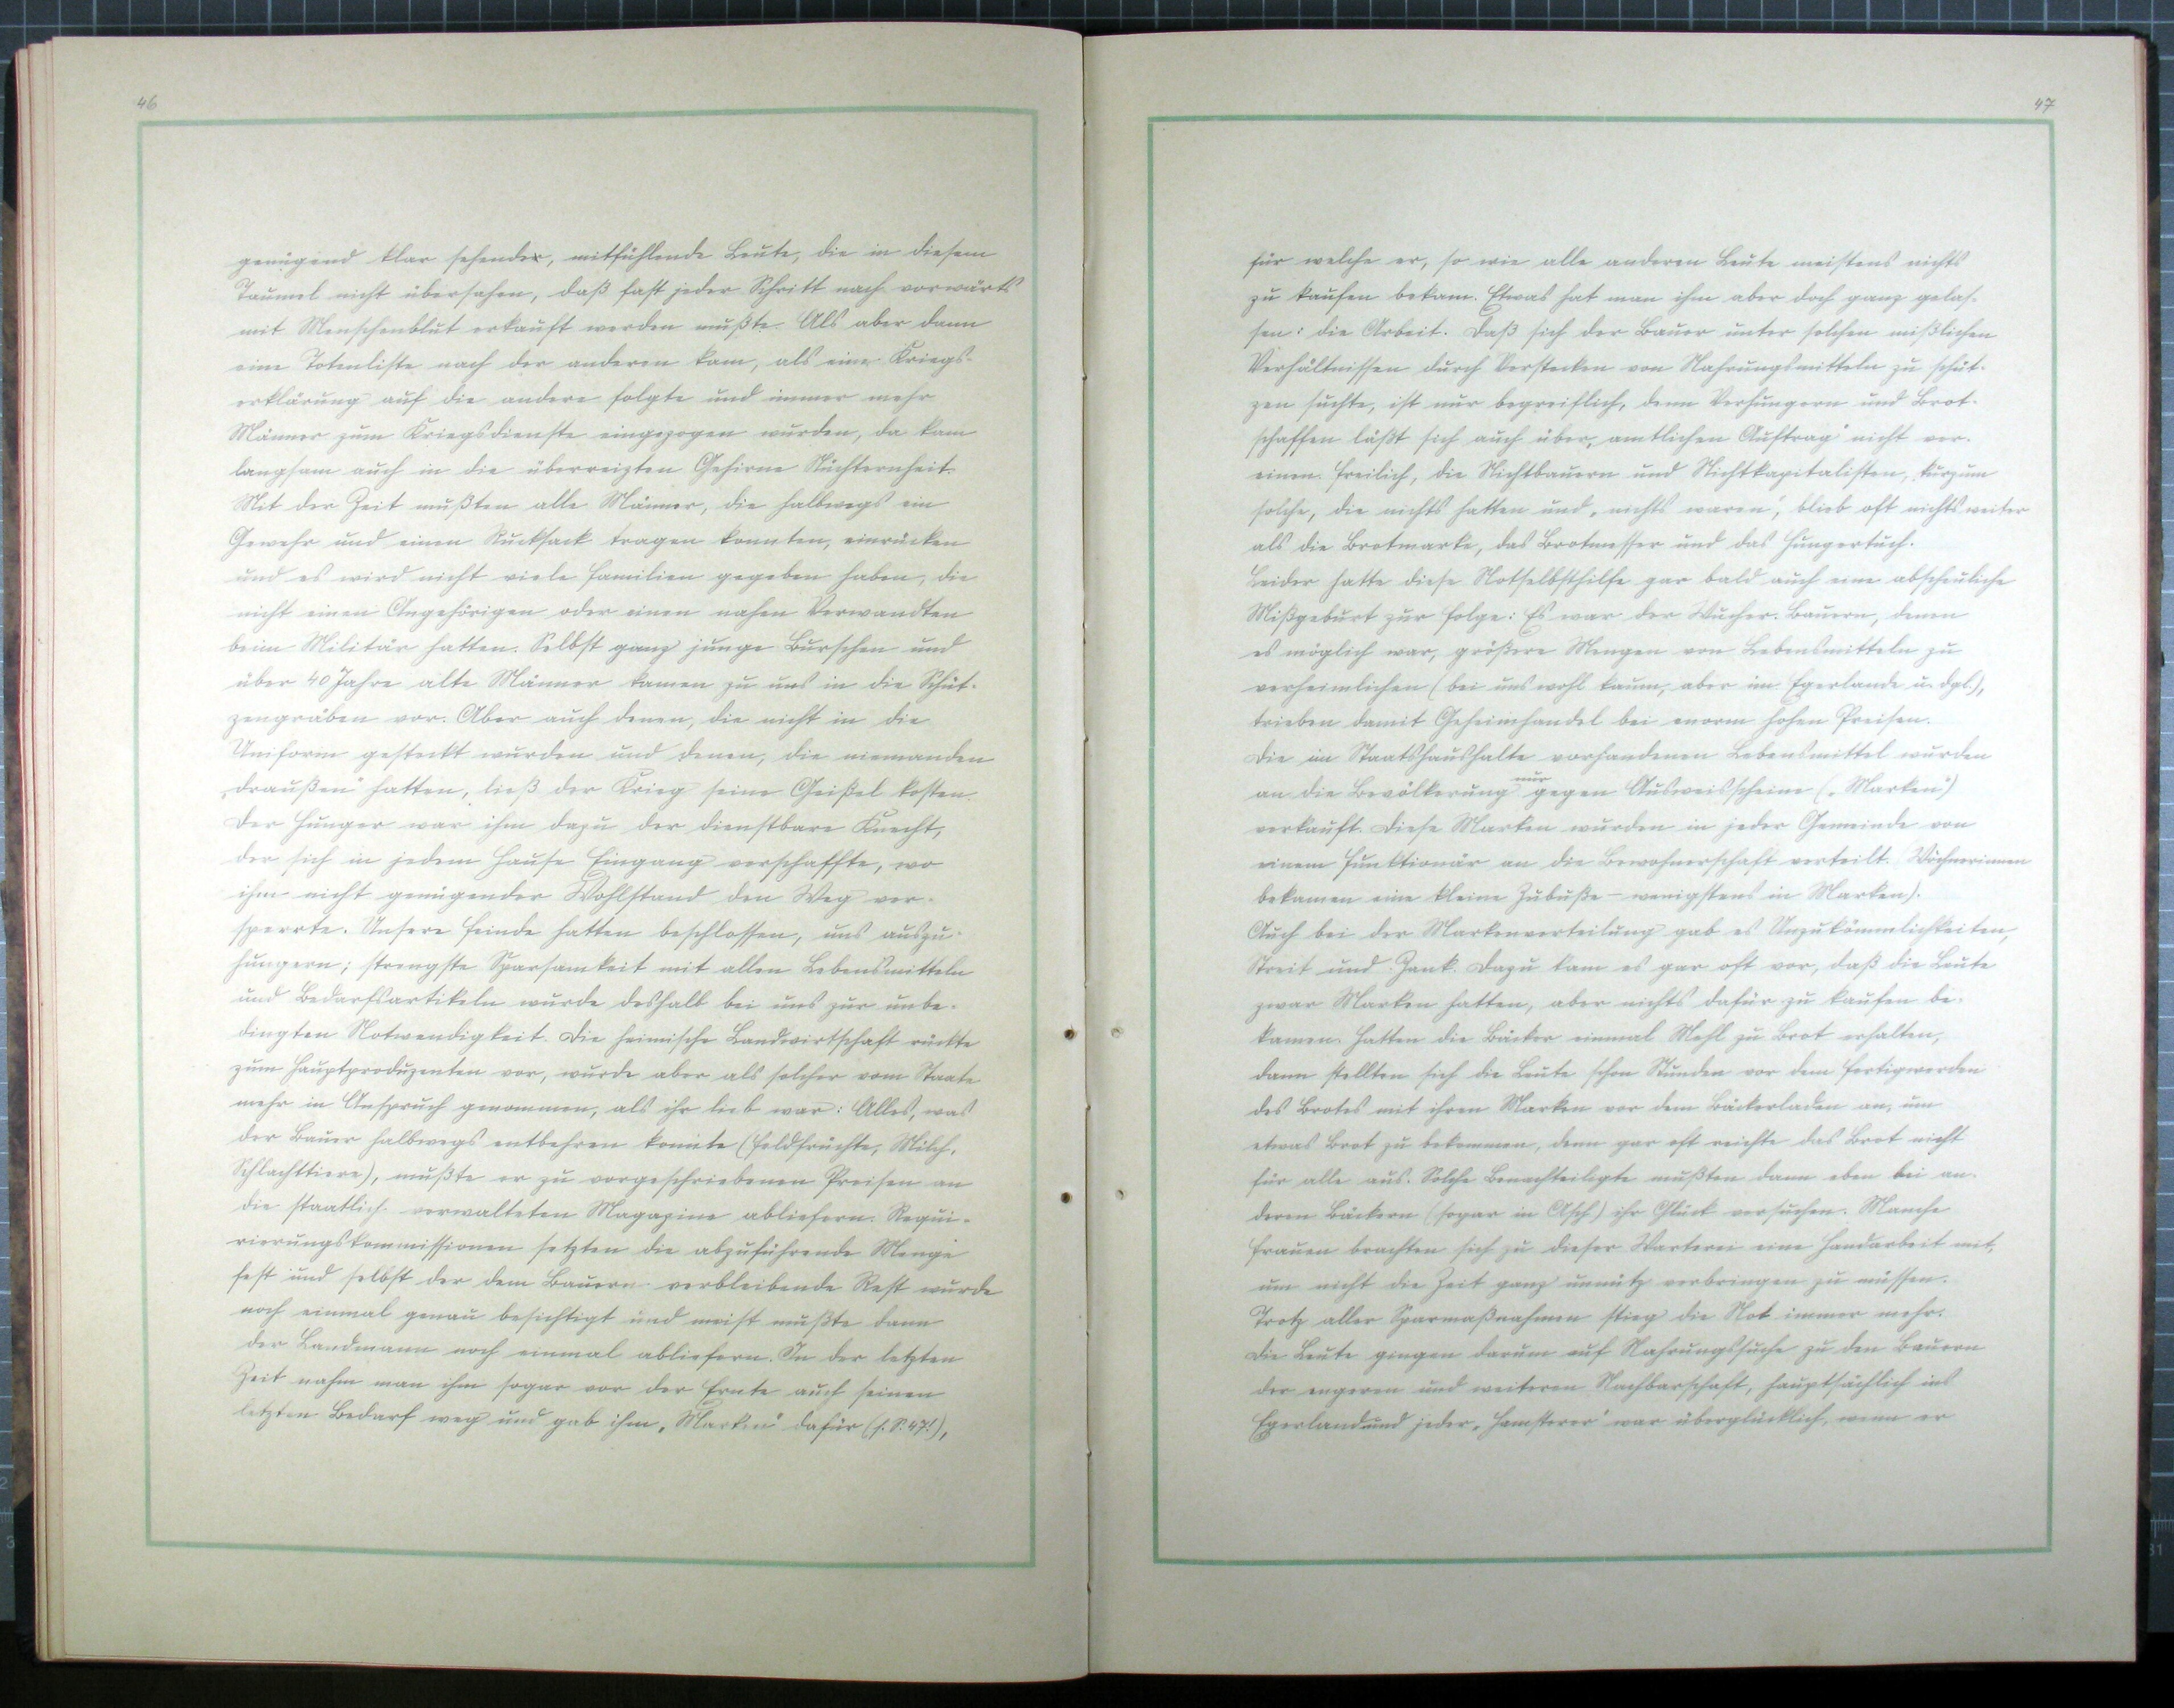 46
genügend klar sehender, mitfühlende Leute, die in diesem
Taumel nicht übersahen, daß fast jeder Schritt nach vorwärts
mit Menschenblut erkauft werden mußte. Als aber dann
eine Totenliste nach der anderen kam, als eine Kriegs-
erklärung auf die andere folgte und immer mehr
Männer zum Kriegsdienste eingezogen wurden, da kam
langsam auch in die überreizten Gehirne Nüchternheit.
Mit der Zeit mußten alle Männer, die halbwegs ein
Gewehr und einen Rucksack tragen konnten, einrücken
und es wird nicht viele Familien gegeben haben, die
nicht einen Angehörigen oder einen nahen Verwandten
beim Militär hatten. Selbst ganz junge Burschen und
über 40 Jahre alte Männer kamen zu uns in die Schüt-
zengräben vor. Aber auch denen, die nicht in die
Uniform gesteckt wurden und denen, die niemanden
„draußen" hatten, ließ der Krieg seine Geißel kosten.
Der Hunger war ihm dazu der dienstbare Knecht,
der sich in jedem Hause Eingang verschaffte, wo
ihm nicht genügender Wohlstand den Weg ver-
sperrte. Unsere Feinde hatten beschlossen, uns auszu-
hungern; strengste Sparsamkeit mit allen Lebensmitteln
und Bedarfsartikeln wurde deshalb bei uns zur unbe-
dingten Notwendigkeit. Die heimische Landwirtschaft rückte
zum Hauptproduzenten vor, wurde aber als solcher vom Staate
mehr in Anspruch genommen, als ihr lieb war: Alles, was
der Bauer halbwegs entbehren konnte (Feldfrüchte, Milch,
Schlachttiere), mußte er zu vorgeschriebenen Preisen an
die staatlich verwalteten Magazine abliefern. Requi-
rierungskommissionen setzten die abzuführende Menge
fest und selbst der dem Bauern verbleibende Rest wurde
noch einmal genau besichtigt und meist mußte dann
der Landmann noch einmal abliefern. In der letzten
Zeit nahm man ihm sogar vor der Ernte auch seinen
letzten Bedarf weg und gab ihm „Marken" dafür (s. S. 47!),
47
für welche er, so wie alle anderen Leute meistens nichts
zu kaufen bekam. Etwas hat man ihm aber doch ganz gelas-
sen: die Arbeit. Daß sich der Bauer unter solchen mißlichen
Verhältnissen durch Verstecken von Nahrungsmitteln zu schüt-
zen suchte, ist nur begreiflich, denn Verhungern und Brot-
schaffen läßt sich auch über „amtlichen Auftrag" nicht ver-
einen. Freilich, die Nichtbauern und Nichtkapitalisten, kurzum
solche, die nichts hatten und „nichts waren", blieb oft nichts weiter
als die Brotmarke, das Brotmesser und das Hungertuch.
Leider hatte diese Notselbsthilfe gar bald auch eine abscheuliche
Mißgeburt zur Folge: Es war der Wucher. Bauern, denen
es möglich war, größere Mengen von Lebensmitteln zu
verheimlichen (bei uns wohl kaum, aber im Egerlande u. dgl.),
trieben damit Geheimhandel bei enorm hohen Preisen.
Die im Staatshaushalte vorhandenen Lebensmittel wurden
an die Bevölkerung nur gegen Ausweisscheine („Marken")
verkauft. Diese Marken wurden in jeder Gemeinde von
einem Funktionär an die Bewohnerschaft verteilt. (Wöchnerinnen
bekamen eine kleine Zubuße – wenigstens in Marken).
Auch bei der Markenverteilung gab es Unzukömmlichkeiten,
Streit und Zank. Dazu kam es gar oft vor, daß die Leute
zwar Marken hatten, aber nichts dafür zu kaufen be-
kamen. Hatten die Bäcker einmal Mehl zu Brot erhalten,
dann stellten sich die Leute schon Stunden vor dem Fertigwerden
des Brotes mit ihren Marken vor dem Bäckerladen an, um
etwas Brot zu bekommen, denn gar oft reichte das Brot nicht
für alle aus. Solche Benachteiligte mußten dann eben bei an-
deren Bäckern (sogar in Asch) ihr Glück versuchen. Manche
Frauen brachten sich zu dieser Warterei eine Handarbeit mit,
um nicht die Zeit ganz unnütz verbringen zu müssen.
Trotz aller Sparmaßnahmen stieg die Not immer mehr.
Die Leute gingen darum auf Nahrungssuche zu den Bauern
der engeren und weiteren Nachbarschaft, hauptsächlich ins
Egerland und jeder „Hamsterer" war überglücklich, wenn er